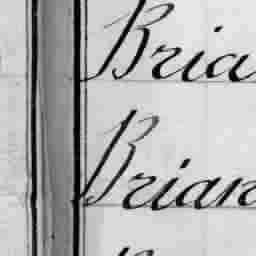 Bria
Brian